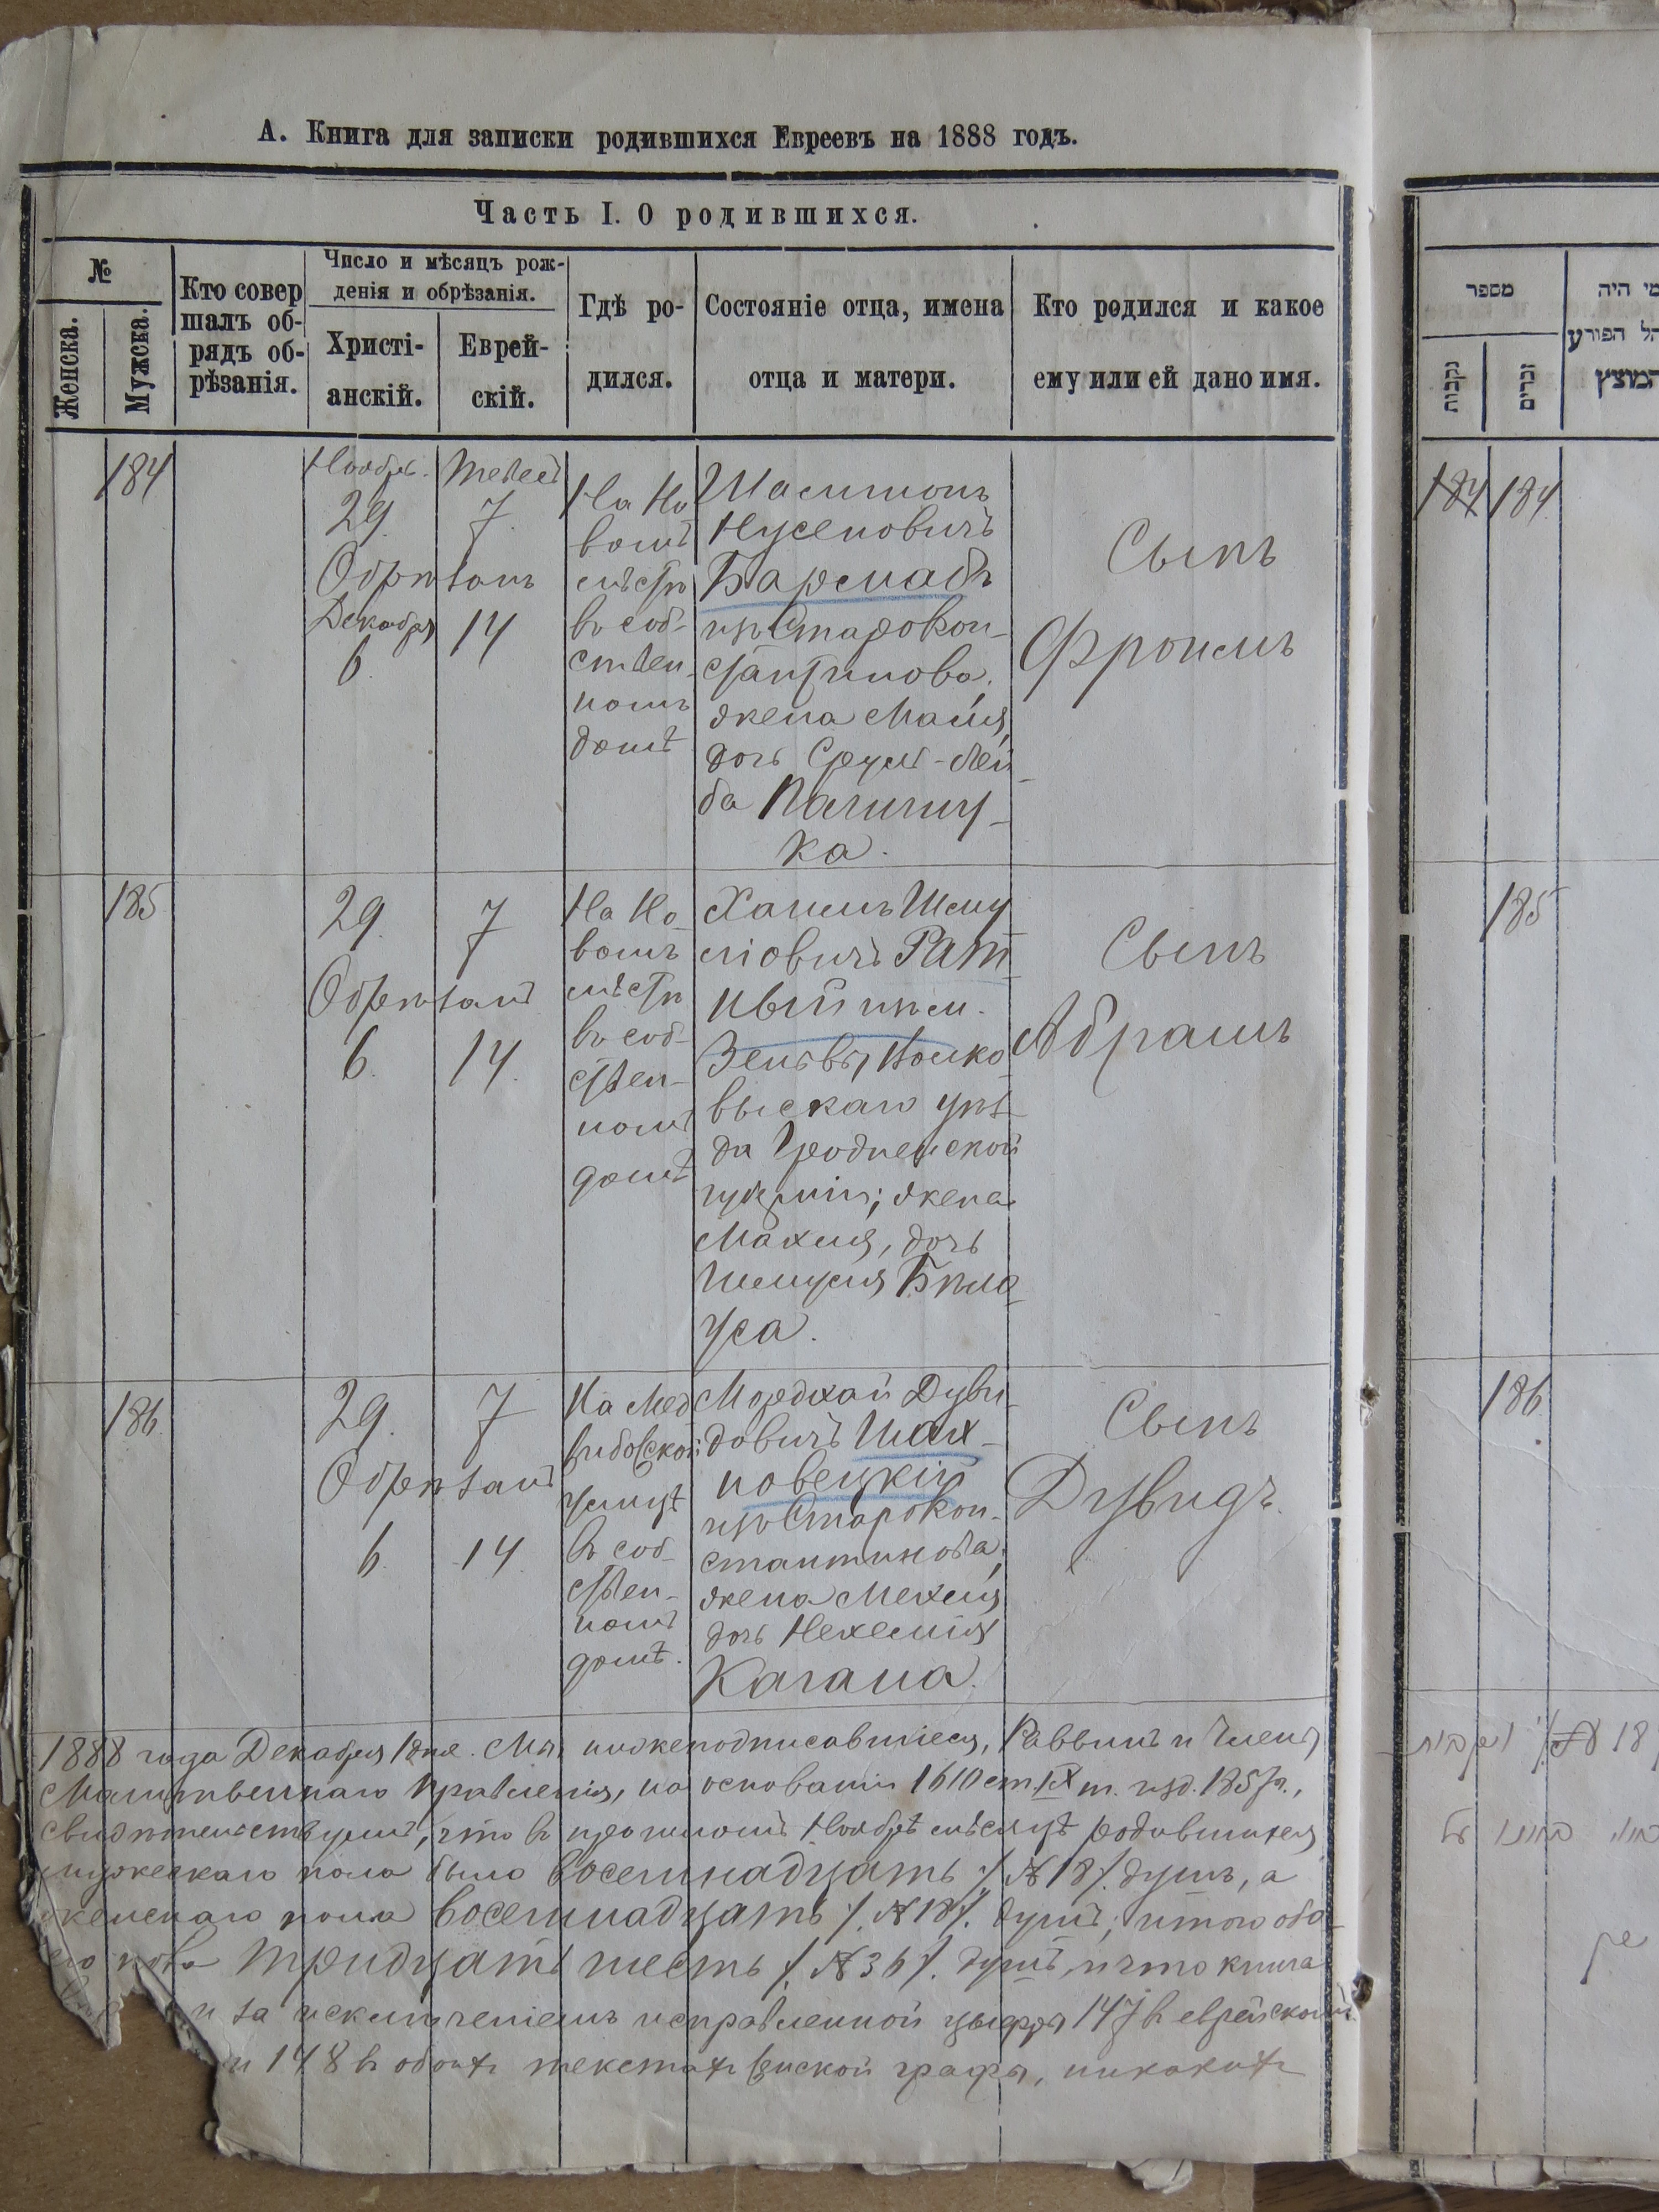 А. Книга для записки родившихся Евреевъ на 1888 годъ.
Часть I. О родившихся.
№
Женска.
Мужска.
Кто совер
шалъ об-
рядъ об-
рѣзанія.
Число и мѣсяцъ рож-
денія и обрѣзанія.
Христі-
анскій.
Еврей-
скій.
Гдѣ ро-
дился.
Состояніе отца, имена
отца и матери.
Кто родился и какое
ему или ей дано имя.
184
Ноябрь.
29.
Обрѣзанъ
Декабря
6.
Тевесъ
7.
14
На Но
вомъ
мѣстѣ
въ соб-
ствен-
номъ
домѣ
Нусеновичъ
изъ Старокон-
стантинова.
жена Майя,
дочь Срулъ-Лей-
ба
ка.
Сынъ
Фроимъ
185
29.
7
Обрѣзанъ
6.
14.
На Но-
вомъ
мѣстѣ
въ соб-
ствен-
номъ
домѣ
Хаимъ Шму
ліовичъ Рат-
ный изъ м.
Зельвы, Волко
выскаго уѣз-
да Гродненской
губерніи; жена
Махля, дочь
Шмуля Бѣло-
уса.
Сынъ
Абрамъ
186
29.
7
Обрѣзанъ
6
14
На Мед
жибовской
улицѣ
въ соб-
ствен-
номъ
домѣ.
Мордхай Дуви-
довичъ Шах-
новецкій
изъ Старокон-
стантинова;
жена Мехля
дочь Нехемія
Кагана.
Сынъ
Дувидъ.
1888 года Декабря 1 дня. Мы нижеподписавшіеся, Раввинъ и Члены
Молитвеннаго Правленія, на основаніи 1610 ст. IX т. изд. 1857 г.,
свидѣтельствуемъ, что въ прошломъ Ноябрѣ мѣсяцѣ родившихся
мужескаго пола было восемнадцать /. № 18 /. душъ, а
женскаго пола восемнадцать /. № 18 /. душъ; итого обо-
его пола тридцать шесть /. № 36 /. душъ, и что книга
и за исключеніемъ исправленной цыфры 147 въ еврейскомъ
и 148 въ обоихъ текстахъ женской графы, никакихъ
מספר
נקבות
זכרים
מי היה
הפורע
המוצץ
184
184
185
186